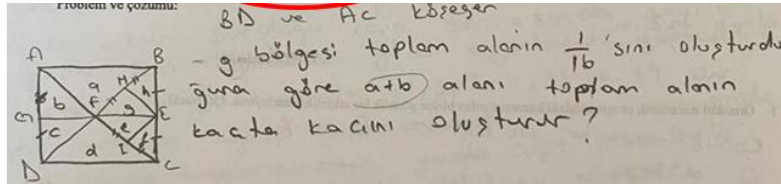 Problem ve çözümü:
BD ve AC köşegen
- g bölgesi toplam alanın 1/16 'sını oluşturdu
ğuna göre a+b alanı toplam alanın
kaçta kaçını oluşturur?
A B
a H
b F h
G g E
c e f
d I
D C